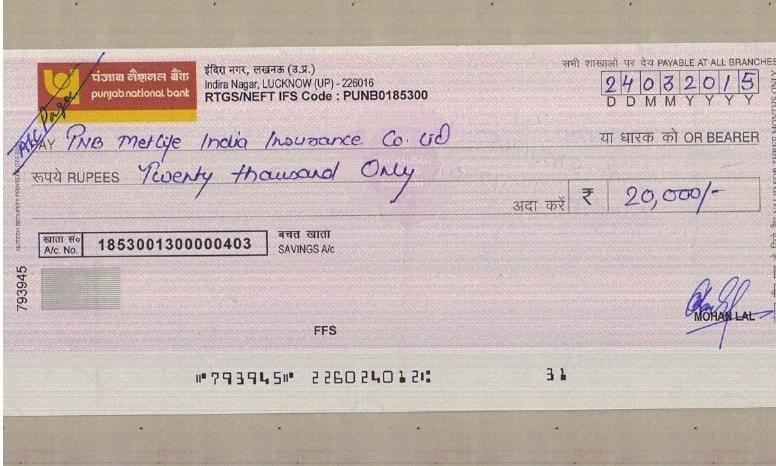 पंजाब नैशनल बैंक
punjab national bank
इंदिरा नगर, लखनऊ (उ.प्र.)
Indira Nagar, LUCKNOW (UP) - 226016
RTGS/NEFT IFS Code : PUNB0185300
सभी शाखाओं पर देय PAYABLE AT ALL BRANCHES
24032015
D D M M Y Y Y Y
A/C Payee
PAY PNB Metlife India Insurance Co. Ltd या धारक को OR BEARER
रूपये RUPEES Twenty thousand Only
अदा करें ₹ 20,000/-
खाता सं० A/c. No. 1853001300000403 बचत खाता SAVINGS A/c
793945
MOHAN LAL
FFS
⑈793945⑈ 226024012⑆ 31